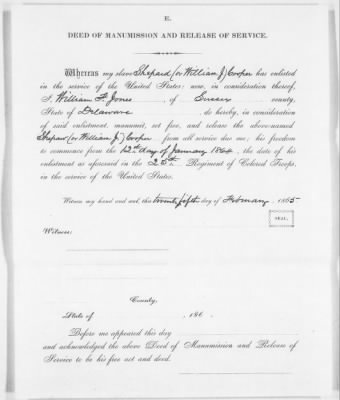 E.
DEED OF MANUMISSION AND RELEASE OF SERVICE.
Whereas my slave Shepard (or William J) Cooper has enlisted
in the service of the United States: now, in consideration thereof,
I, William F. Jones, of Sussex county,
State of Delaware, do hereby, in consideration
of said enlistment, manumit, set free, and release the above-named
Shepard (or William J.) Cooper from all service due me; his freedom
to commence from the 12th day of January 1864, the date of his
enlistment as aforesaid in the 25th. Regiment of Colored Troops,
in the service of the United States.
Witness my hand and seal, this twenty fifth day of February, 1865
SEAL.
Witness:
County,
State of , 186 .
Before me appeared this day
and acknowledged the above Deed of Manumission and Release of
Service to be his free act and deed.